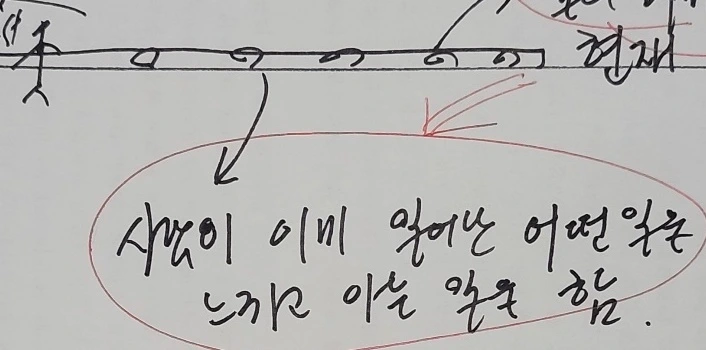 현재
사람이 이미 일어난 어떤 일을
느끼고 아는 일을 함.